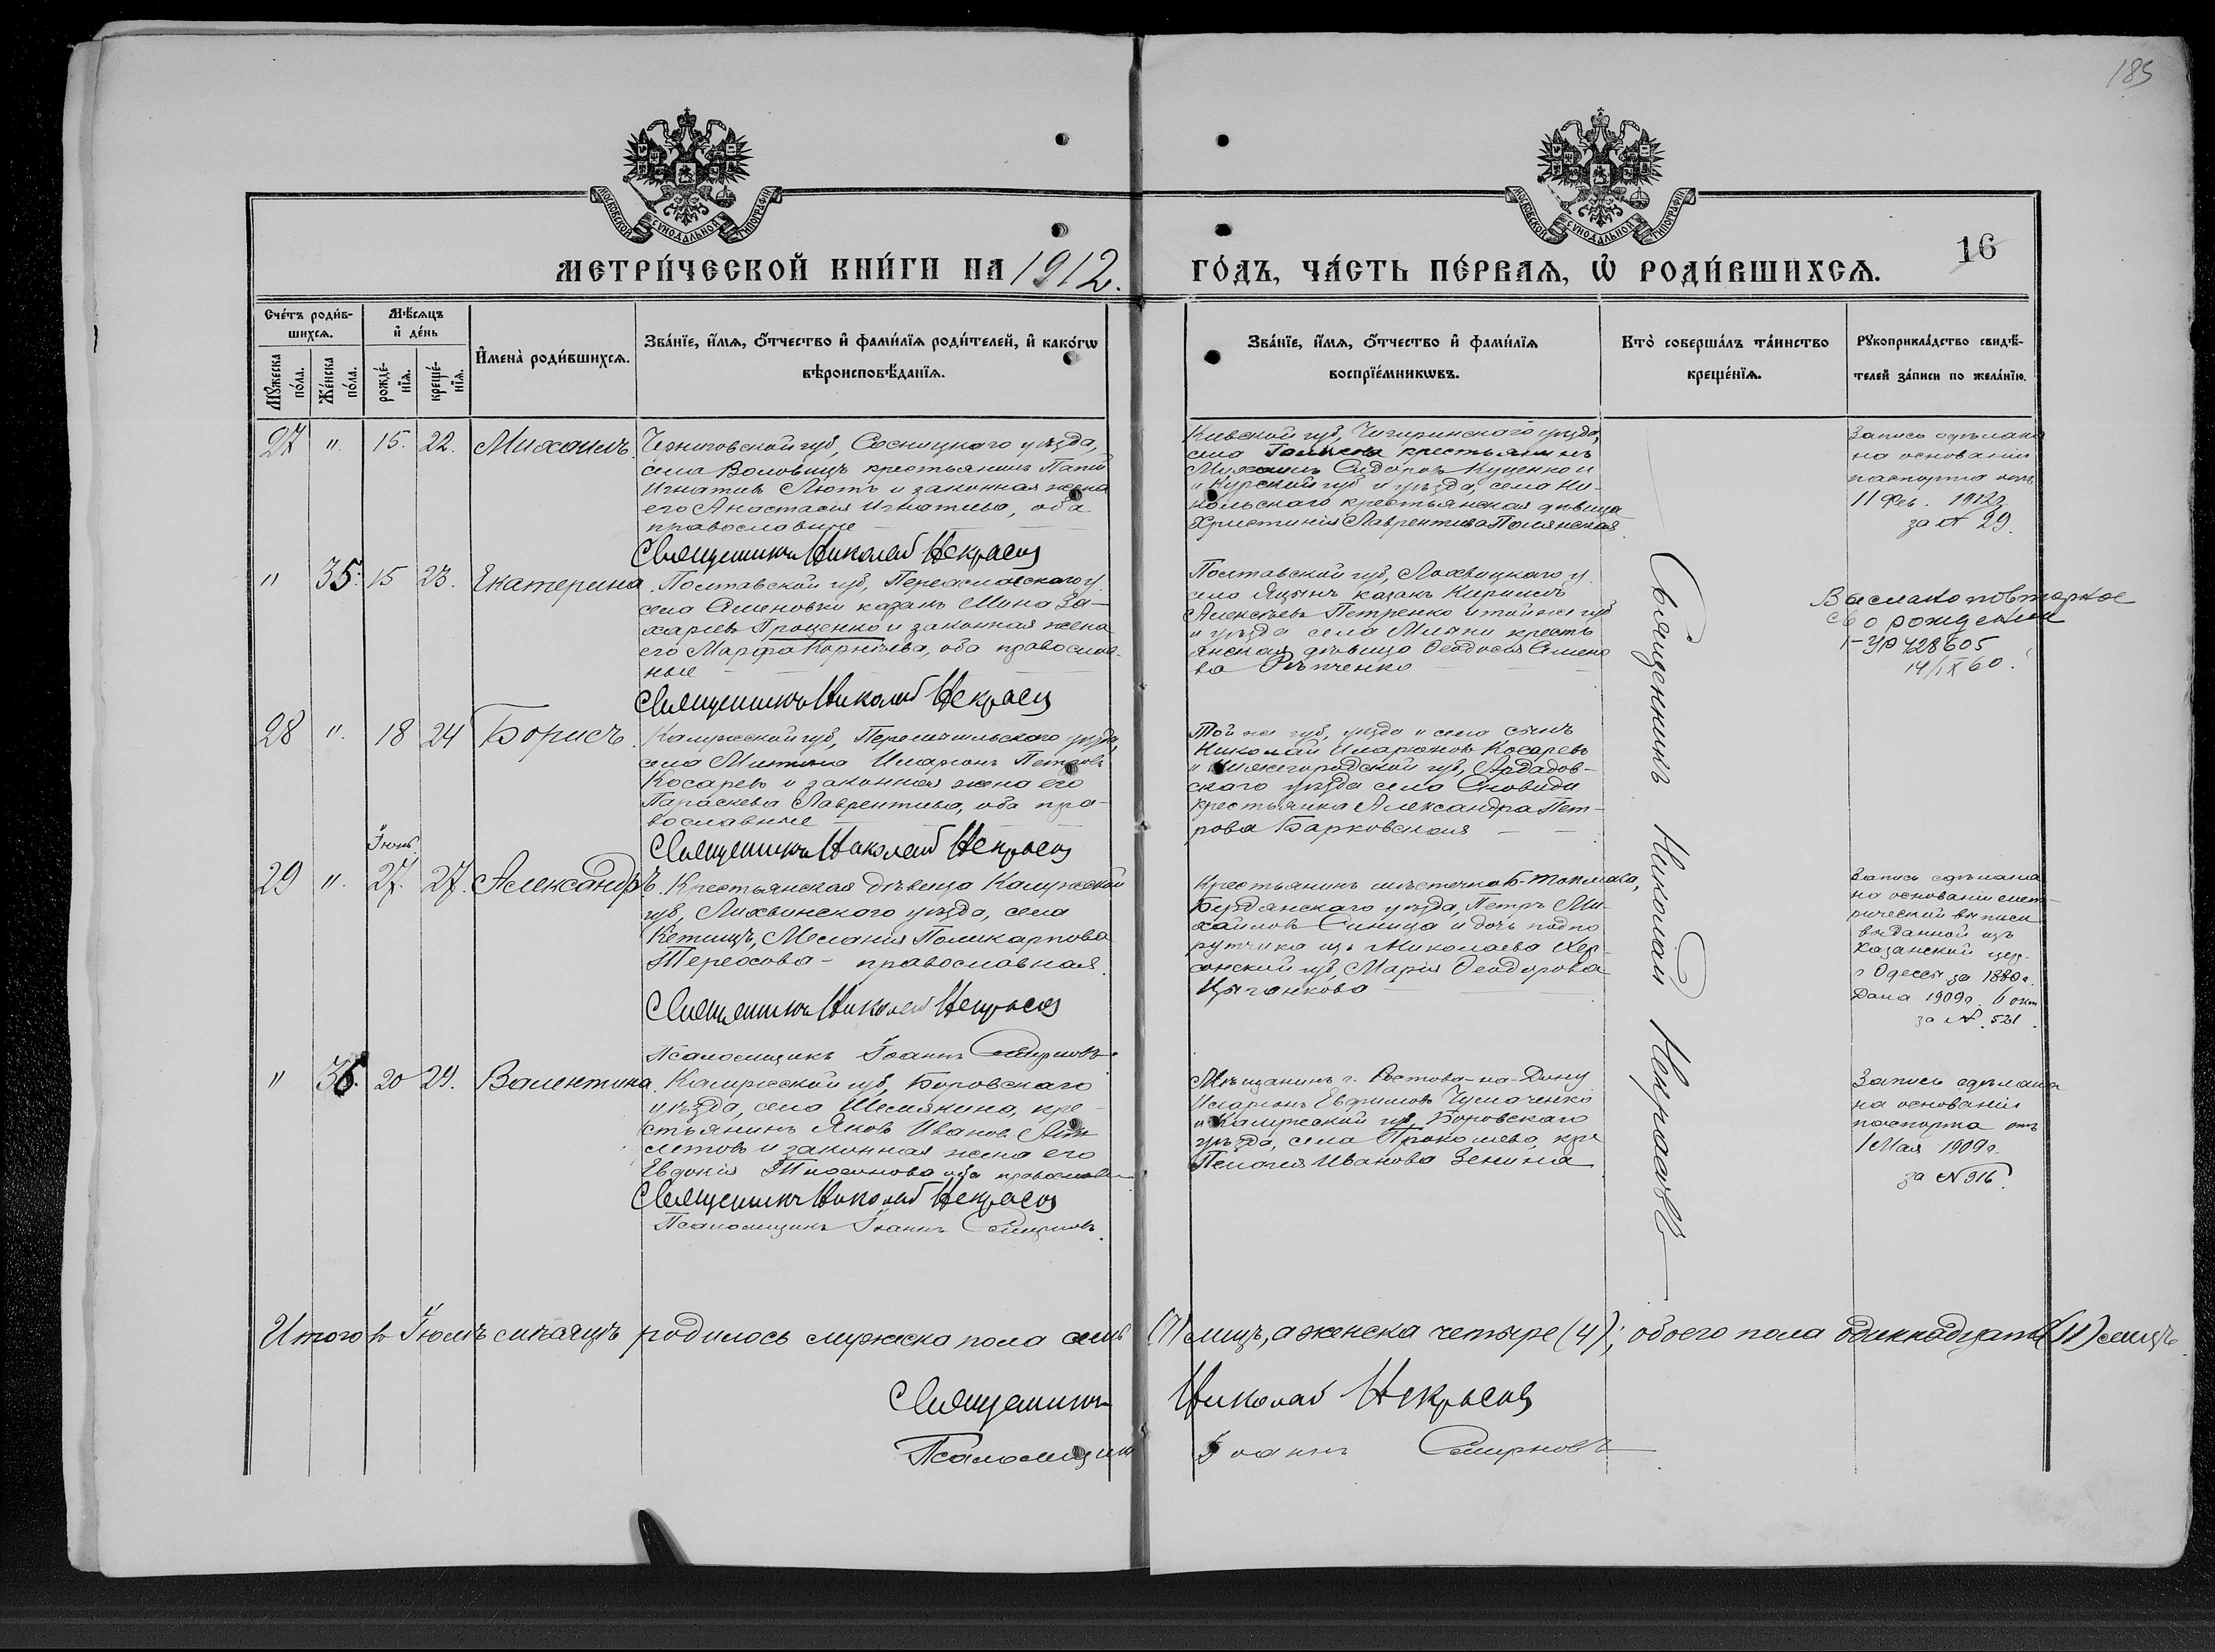 185
МОСКОВСКОЙ СѴНОДАЛЬНОЙ ТИПОГРАФІИ
МОСКОВСКОЙ СѴНОДАЛЬНОЙ ТИПОГРАФІИ
16
МЕТРИ́ЧЕСКОЙ КНИ́ГИ НА 1912.
ГО́ДЪ, ЧА́СТЬ ПЕ́РВАѦ, Ѽ РОДИ́ВШИХСѦ.
Сче́тъ роди́вшихсѧ.
Мꙋ́жеска по́ла.
Же́нска по́ла.
Мѣ́сѧцъ и҆ де́нь
рожде́нїѧ.
креще́нїѧ.
И҆мена̀ роди́вшихсѧ.
Зва́нїе, и҆́мѧ, ѻ҆́тчество и҆ фами́лїѧ роди́телей, и҆ како́гѡ
вѣроисповѣ́данїѧ.
Зва́нїе, и҆́мѧ, ѻ҆́тчество и҆ фами́лїѧ
воспрїе́мникѡвъ.
Кто̀ соверша́лъ та́инство
креще́нїѧ.
Рꙋкоприкла́дство свидѣ́-
телей за́писи по жела́нїю.
27 " 15. 22. Михаилъ.
Черниговской губ, Сосницкаго уѣзда,
села Воловицъ крестьянинъ
Игнатіевъ Лютъ и законная жена
его Анастасія Игнатіева, оба
православные
Священникъ Николай Некрасовъ
Кіевской губ, Чигиринскаго уѣзда,
села крестьянинъ
Михаилъ Сидоровъ Куценко и
и Курской губ и уѣзда, села Ни-
кольскаго крестьянская дѣвица
Христинія Лаврентіева Полянская
Запись сдѣлана
на основаніи
паспорта отъ
11 Фев. 1912 г
за № 29.
" 35. 15 23. Екатерина.
Полтавской губ, Переяславскаго у
села Семеновки казакъ Мина За-
харіевъ Проценко и законная жена
его Марфа Корніева, оба православ-
ные
Священникъ Николай Некрасовъ
Полтавской губ, Лохвицкаго у
села Яцынъ казакъ Кириллъ
Алексѣевъ Петренко и той же губ
и уѣзда села Млыни кресть
янская дѣвица Ѳеодосія Семено
ва Рѣпченко
Выслано повторное
св о рождении
1-УР 428605
14/IX 60.
28 " 18 24 Борисъ.
Калужской губ, Перемышльскаго уѣзда,
села Митина Иларіонъ Петровъ
Косаревъ и законная жена его
Параскева Лаврентіева, оба пра-
вославные
Священникъ Николай Некрасовъ
Той же губ, уѣзда и села сынъ
Николай Иларіоновъ Косаревъ
и Нижегородской губ, Ардатов-
скаго уѣзда села Сновиди
крестьянка Александра Пет-
рова Барковская
Іюнь.
29 " 27. 27. Александръ.
Крестьянская дѣвица Калужской
губ, Лихвинскаго уѣзда, села
Кетицъ, Меланія Поликарпова
Терехова - православная.
Священникъ Николай Некрасовъ
Псаломщикъ Іоаннъ Смирновъ.
Крестьянинъ мѣстечка Б-Токмака,
Бердянскаго уѣзда, Петръ Ми-
хайловъ Синица и дочь подпо
рутчика изъ г Николаева Хер-
сонской губ, Марія Ѳеодорова
Цыганкова
Запись сдѣлана
на основаніи мет-
рической выписи
выданной изъ
Казанской цер.
г Одессы за 1880 г.
Дана 1909 г. 6 окт
за № 521.
" 36. 20 29. Валентина.
Калужской губ, Боровскаго
уѣзда, села Шемякина, кре-
стьянинъ Яковъ Ивановъ
и законная жена его
Евдокія Тихонова оба православн
Священникъ Николай Некрасовъ
Псаломщикъ Іоаннъ Смирновъ.
Мѣщанинъ г. Ростова-на-Дону
Иларіонъ Евфимовъ Чумаченко
и Калужской губ, Боровскаго
уѣзда, села кре
Пелагея Иванова Зенина
Запись сдѣлана
на основаніи
паспорта отъ
1 Мая 1909 г.
за № 916.
Священникъ Николай Некрасовъ
Итого въ Іюнѣ мѣсяцѣ родилось мужска пола семь (7) лицъ, а женска четыре (4); обоего пола одиннадцать (11) лицъ.
Священникъ Николай Некрасовъ
Псаломщикъ Іоаннъ Смирновъ